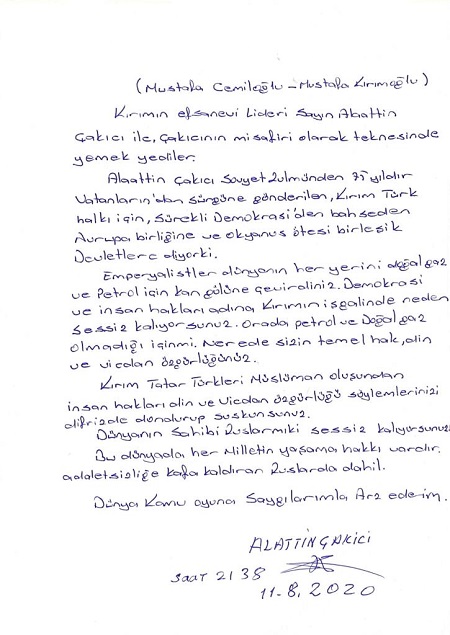 (Mustafa Cemiloğlu - Mustafa Kırımoğlu)
Kırımın efsanevi Lideri Sayın Alaattin
Çakıcı ile, Çakıcının misafiri olarak teknesinde
yemek yediler.
Alaattin Çakıcı Sovyet Zulmünden 75 yıldır
Vatanların'dan Sürgüne gönderilen, Kırım Türk
halkı için, Sürekli Demokrasi'den bahseden
Avrupa birliğine ve Okyanus ötesi birleşik
Devletlere diyorki.
Emperyalistler dünyanın her yerini doğal gaz
ve Petrol için kan gölüne çevirdiniz. Demokrasi
ve insan hakları adına Kırımın işgalinde neden
Sessiz kalıyorsunuz. Orada petrol ve Doğal gaz
olmadığı içinmi. Nerede sizin temel hak, din
ve vicdan özgürlüğünüz.
Kırım Tatar Türkleri Müslüman oluşundan
insan hakları din ve Vicdan özgürlüğü söylemlerinizi
difrizde dondurup suskunsunuz.
Dünyanın Sahibi Ruslarmıki sessiz kalıyorsunuz
Bu dünyada her Milletin yaşama hakkı vardır.
adaletsizliğe kafa kaldıran Ruslarda dahil.
Dünya Kamu oyuna Saygılarımla Arz ederim.
ALATTİN ÇAKICI
SAAT 2138
11-8.2020